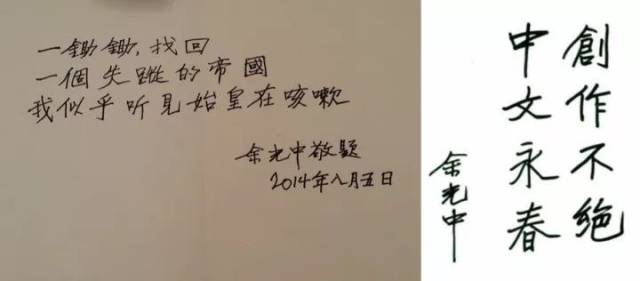 一鋤鋤，找回
一個失蹤的帝國
我似乎听見始皇在咳嗽
余光中敬題
2014年八月五日
創作不絕
中文永春
余光中